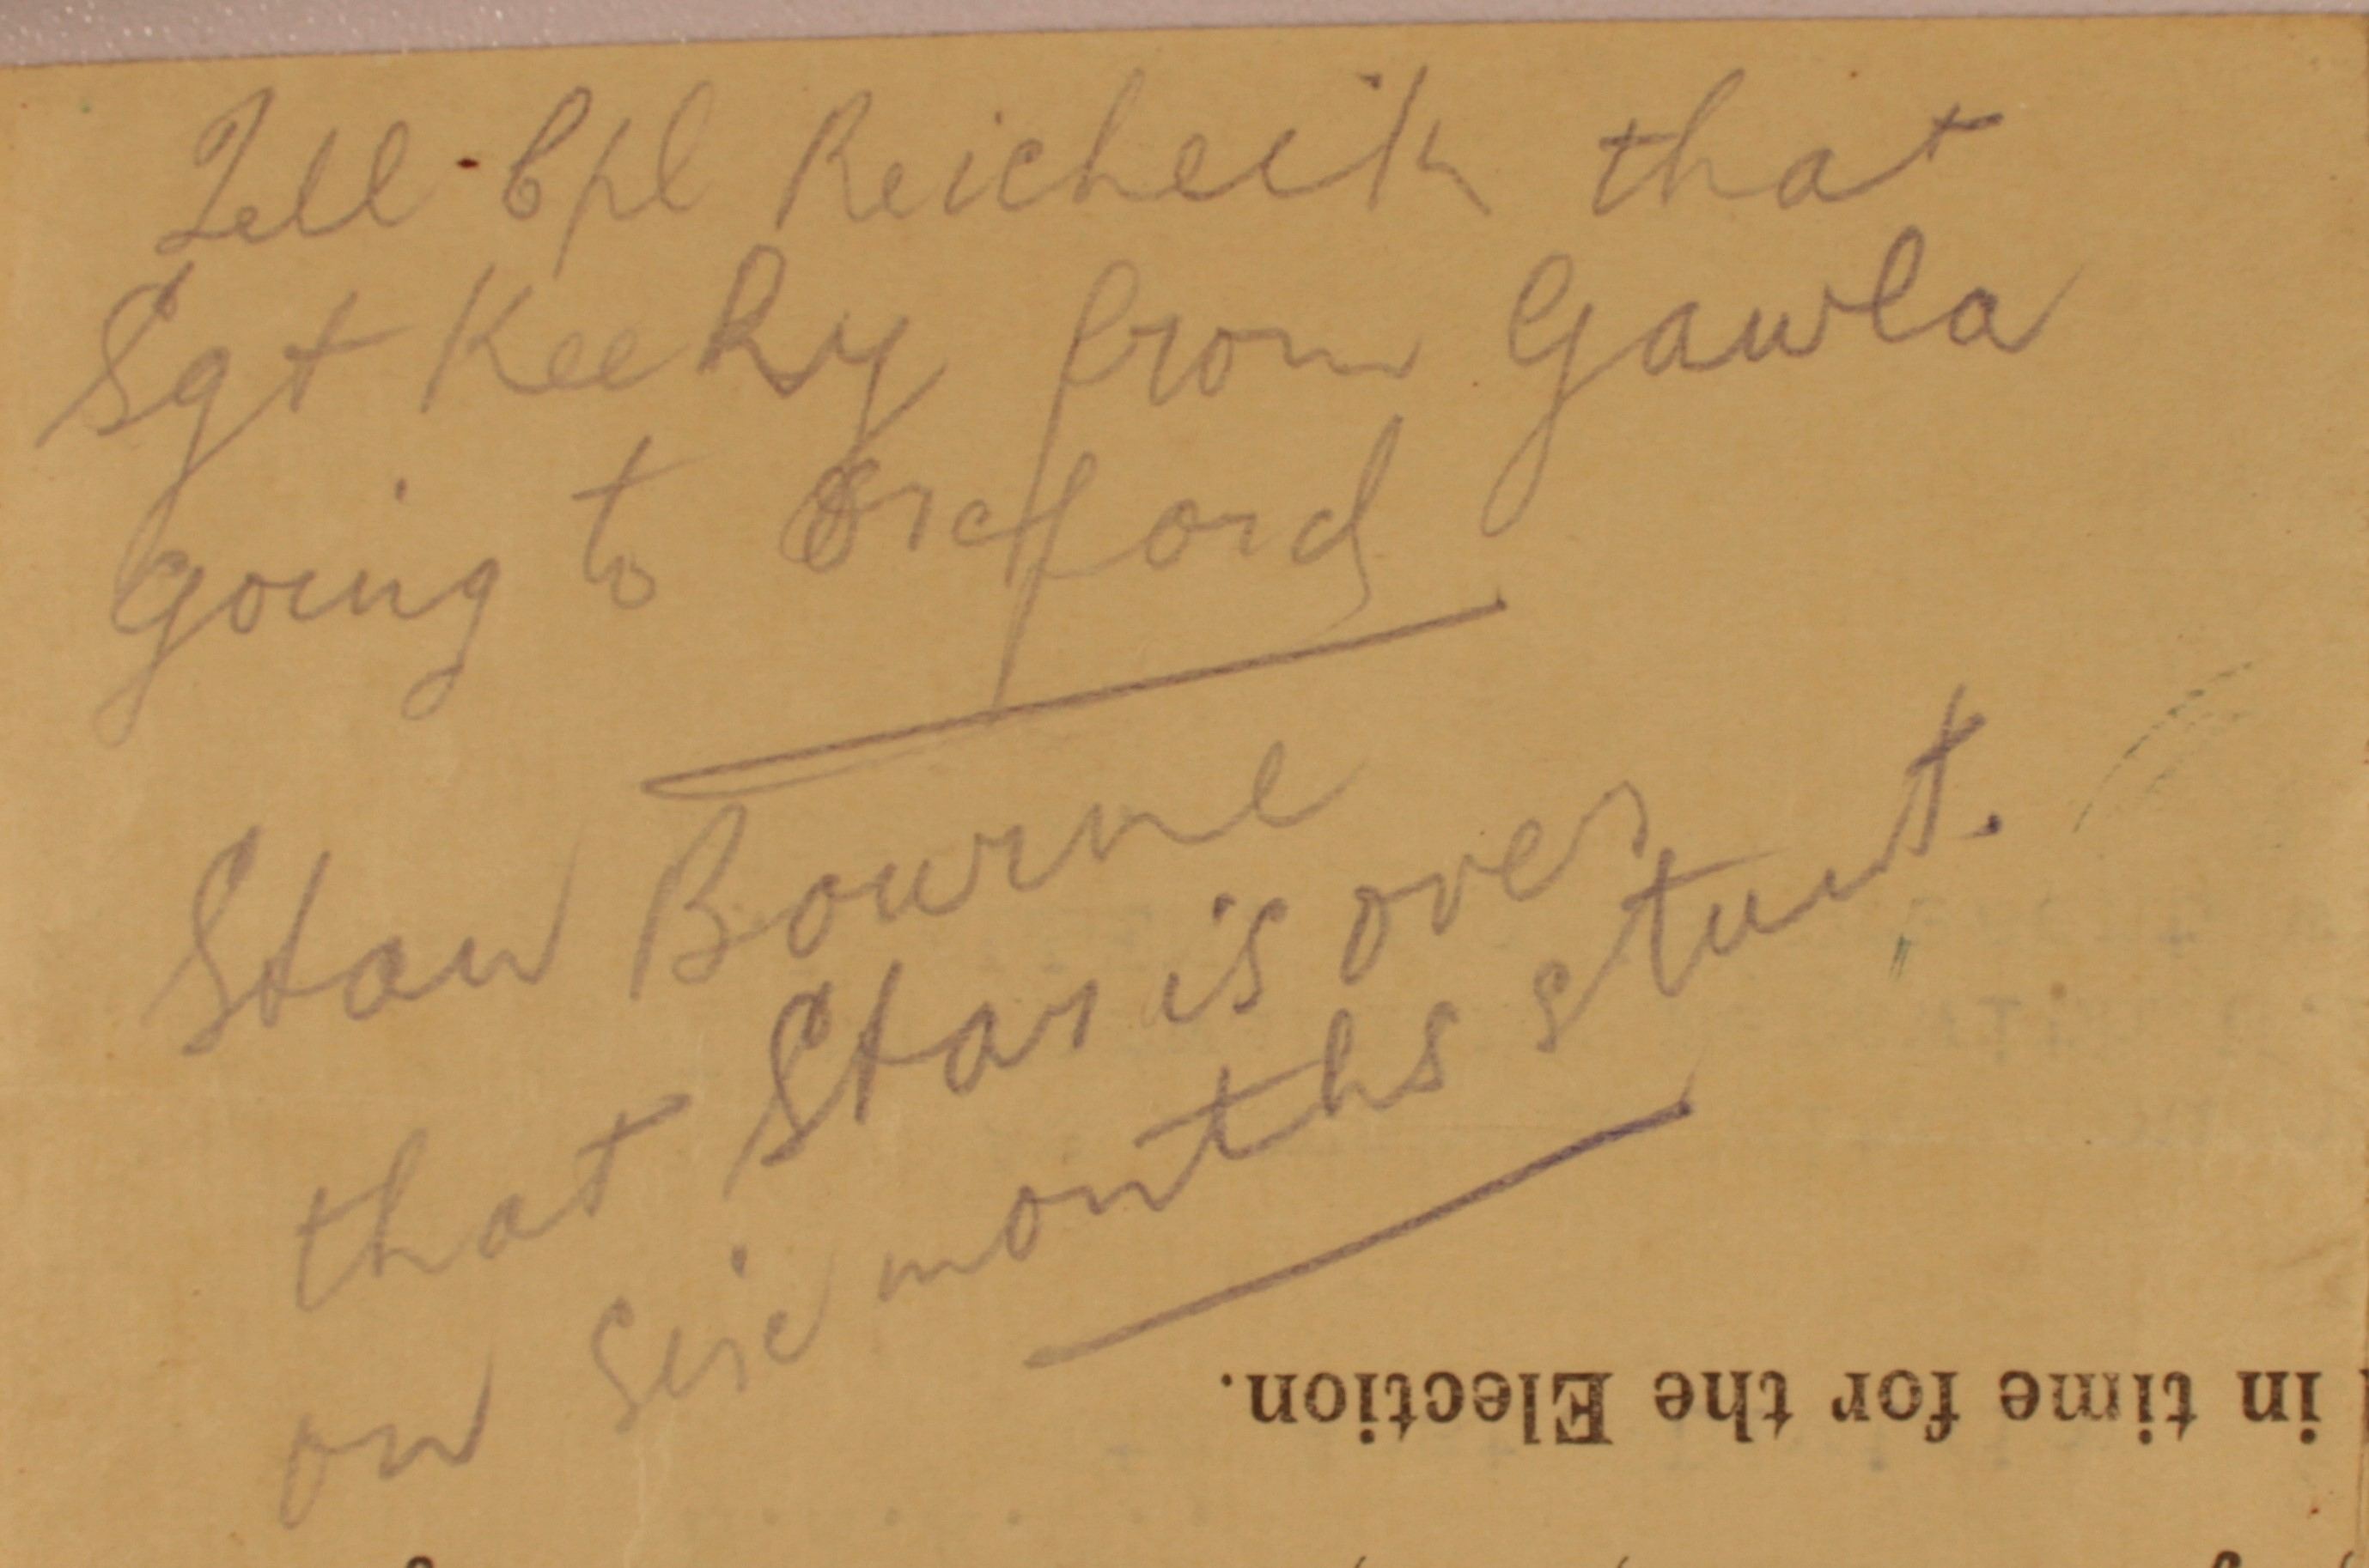 Tell Cpl Reicheik that
Sgt Keeky from Gawla
going to Oxford
Stan Bourne
that Stan is over
on six months stunt.
in time for the Election.